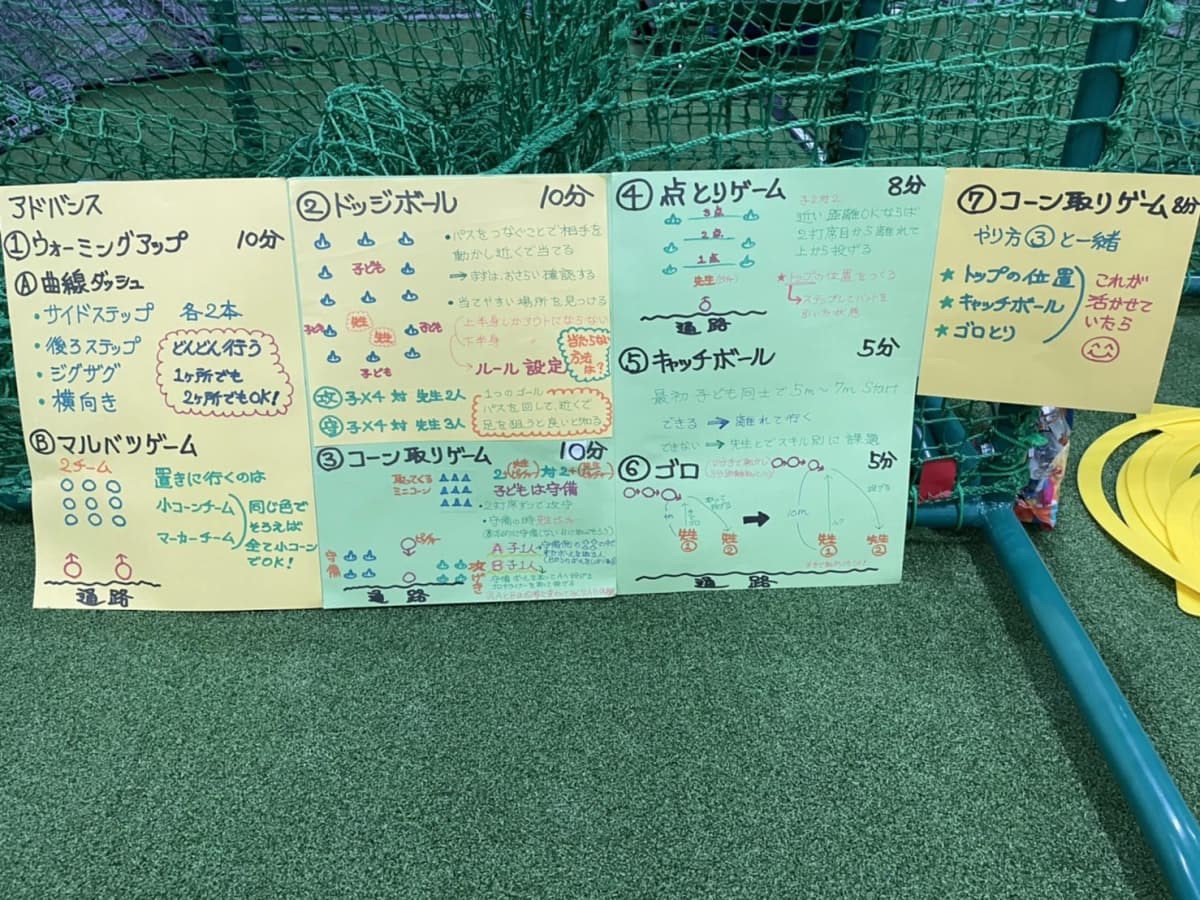 アドバンス
①ウォーミングアップ 10分
Ⓐ曲線ダッシュ
・サイドステップ 各2本
・後ろステップ
・ジグザグ
・横向き
どんどん行う
1ヶ所でも
2ヶ所でもOK!
Ⓑマルバツゲーム
2チーム
置きに行くのは
小コーンチーム
マーカーチーム
同じ色で
そろえば
全て小コーン
でOK!
通路
②ドッジボール 10分
・パスをつなぐことで相手を
動かし近くで当てる
→まずは、おさらい確認する
・当てやすい場所を見つける
子ども
子ども
先生
先生
子ども
子ども
上半身しかアウトにならない
下半身
→ルール設定
当たらない
方法
は?
攻 子×4 対 先生2人
守 子×4 対 先生3人
1つのゴール
パスを回して、近くで
足を狙うと良いと知る
③コーン取りゲーム 10分
取ってくる
ミニコーン
子どもは守備
・2打席ずつで攻守
・守備の時
ピッチャー
守備
攻げき
A 子1人
B 子1人
通路
④点とりゲーム 8分
3点
2点
1点
先生
通路
子2対2
近い距離OKならば
2打席目から離れて
上から投げる
★トップの位置をつくる
⑤キャッチボール 5分
最初 子ども同士で5m〜7m Start
できる → 離れて行く
できない → 先生とでスキル別に課題
⑥ゴロ 5分
先生
①
先生
②
10m
投げる
先生
①
先生
②
通路
⑦コーン取りゲーム 8分
やり方③と一緒
★トップの位置
★キャッチボール
★ゴロとり
これが
活かせて
いたら